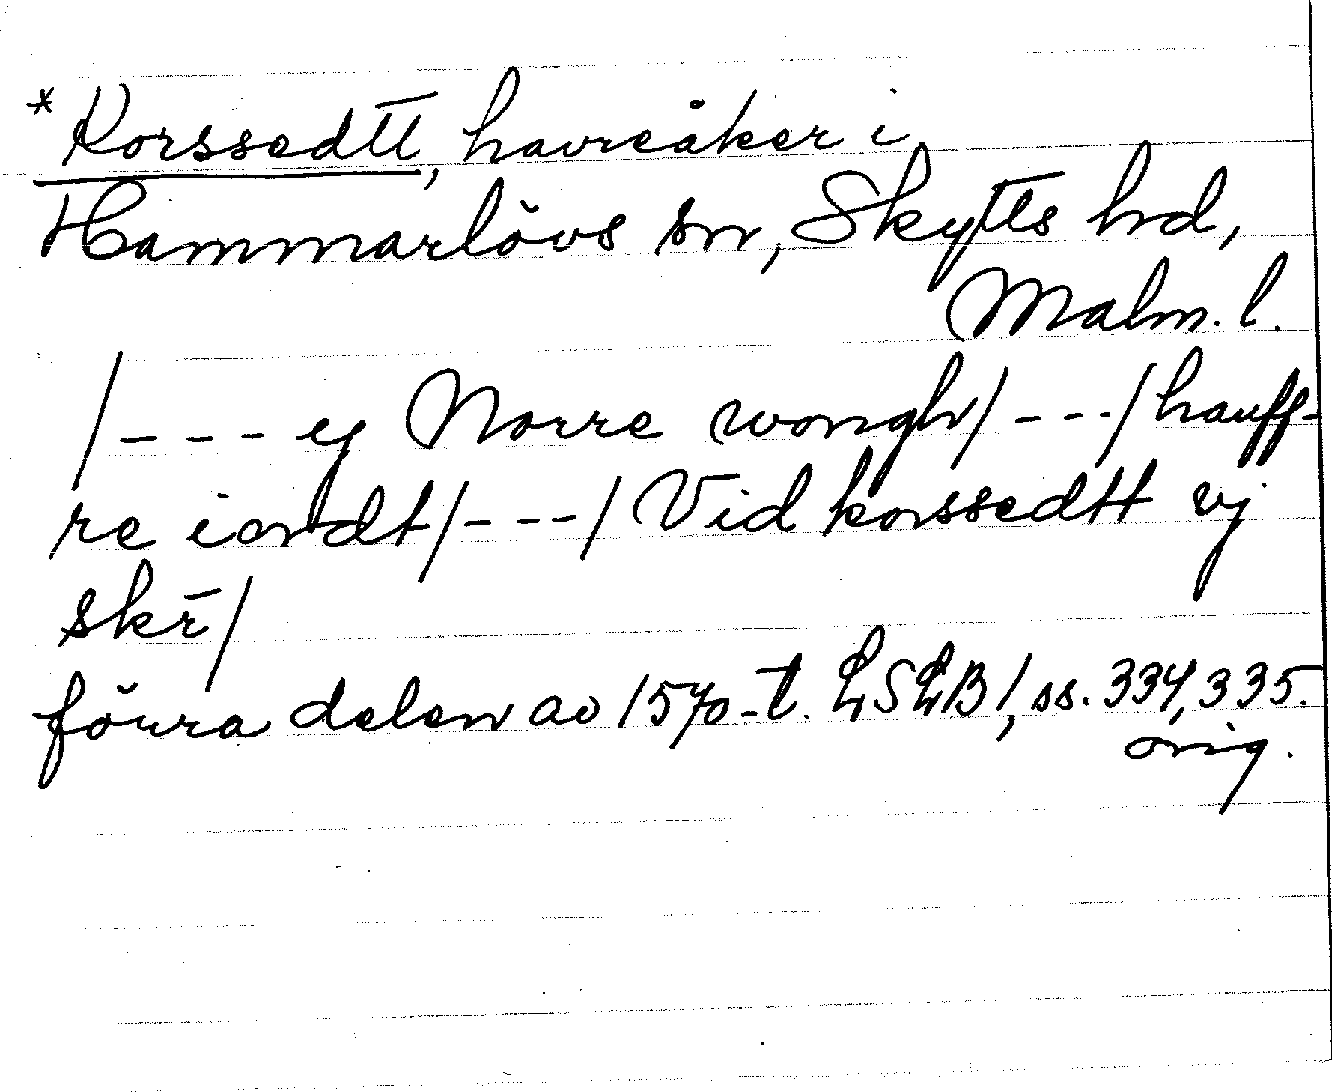 *Korssedtt, havreåker i
Hammarlövs sn, Skytts hd,
Malm. l.
/---ej Norre wongh/---/hauff-
re iordt/---/Vid korssedtt vj
skr̄/
förra delen av 1570-t. LSLB1, ss. 334, 335.
orig.